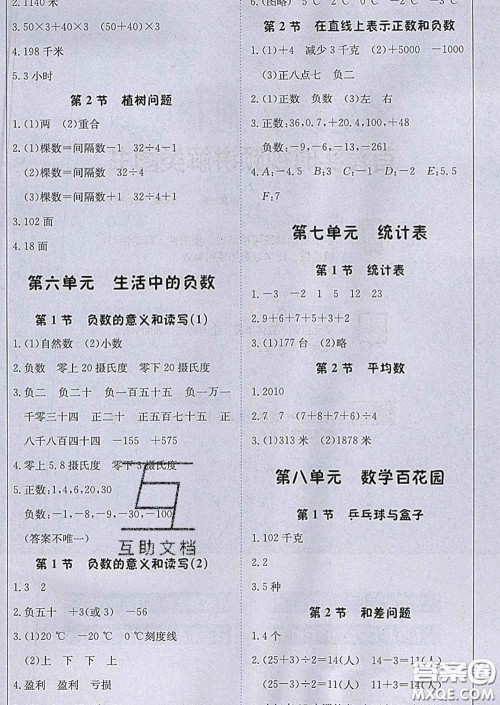 2.1140米
3.50×3+40×3　(50+40)×3
4.198千米
5.3小时
第2节　植树问题
1.(1)两　(2)重合
2.(1)棵数=间隔数-1　32÷4-1
(2)棵数=间隔数　32÷4
(3)棵数=间隔数+1　32÷4+1
3.102面
4.18面
第六单元　生活中的负数
第1节　负数的意义和读写(1)
1.(1)自然数　(2)小数
2.负数　零上20摄氏度　零下20摄氏度
3.负二　负二十　负一百五十五　负一万一
千零三十四　正二千零五　正五十五　正
八千八百四十四　-155　+575
4.零上5.8摄氏度　零下3摄氏度
5.正数:1,4,6,20,30
负数:-1,-8,-9,-30,-100
(答案不唯一)
互助文档
第1节　负数的意义和读写(2)
1.3　2
2.负五十　+3(或3)　-56
3.(1)20℃　-20℃　0℃刻度线
(2)上　下　下　上
4.盈利　盈利　亏损
第2节　在直线上表示正数和负数
1.(1)+4　减少3千克　(2)+5000　-1000
(3)正八点七　负二
2.(1)正数　负数　(3)左　右
3.正数:36,0.7,+20,+8.4,+100
负数:-9,-13,-6,-31
4.A:-4.5　B:3　C:-1　D:-2　E:5.5
F:7
第七单元　统计表
第1节　统计表
1.-3　-2　1　5　12　23
2.9+6+7+5+3+2
3.(1)177台　(2)4　(3)略
第2节　平均数
1.2010
2.7　7　(7+8+7+6)÷4
3.(1)313米　(2)1878米
第八单元　数学百花园
第1节　乒乓球与盒子
1.102千克
2.2
3.5种
第2节　和差问题
1.4个
2.(25+3)÷2=14(人)　14-3=11(人)
答案圈
MXQE.COM